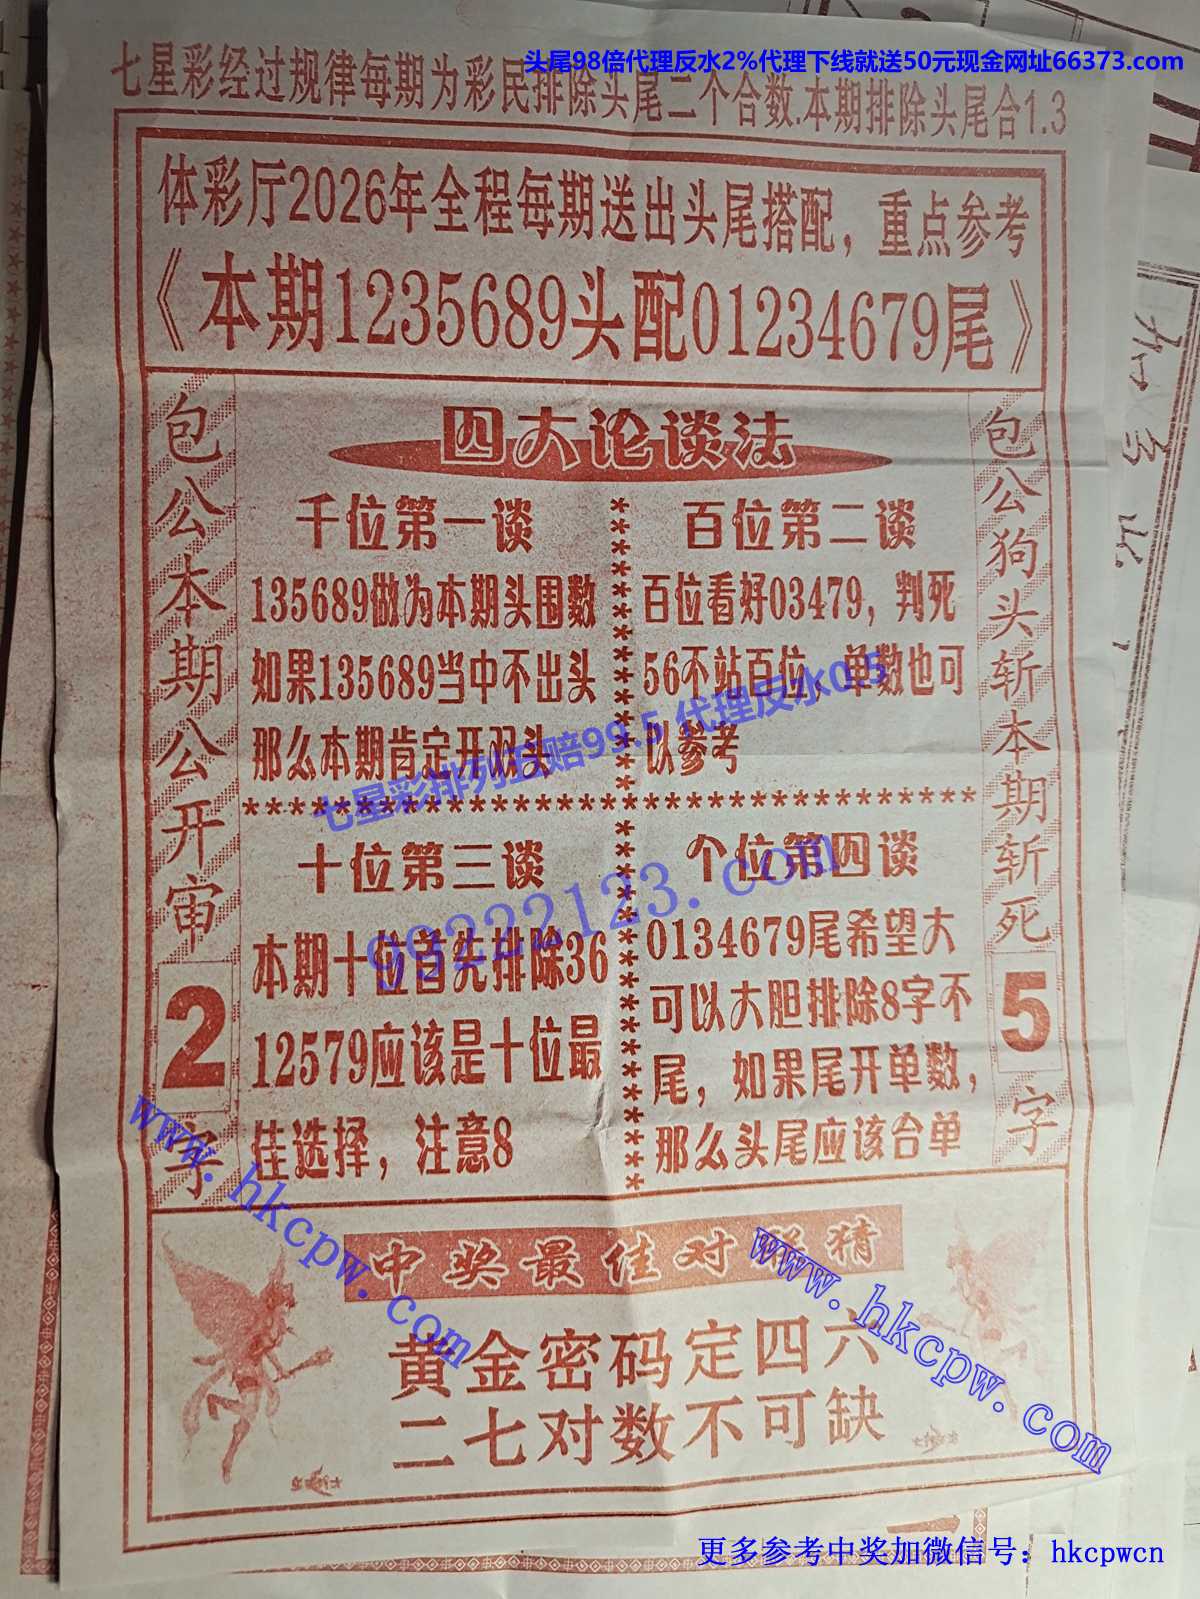 头尾98倍代理反水2%代理下线就送50元现金网址66373.com
七星彩经过规律每期为彩民排除头尾二个合数.本期排除头尾合1.3
体彩厅2026年全程每期送出头尾搭配，重点参考
《本期1235689头配01234679尾》
包公本期公开审2字
四大论谈法
千位第一谈
135689做为本期头围数
如果135689当中不出头
那么本期肯定开双头
百位第二谈
百位看好03479，判死
56不站百位、单数也可
以参考
七星彩排列五赔99.5 代理反水0.5
****************************************
十位第三谈
本期十位首先排除36
12579应该是十位最
佳选择，注意8
个位第四谈
0134679尾希望大
可以大胆排除8字不
尾，如果尾开单数，
那么头尾应该合单
99222123.com
包公狗头斩本期斩死5字
中奖最佳对解猜
黄金密码定四六
二七对数不可缺
www.hkcpw.com
www.hkcpw.com
更多参考中奖加微信号：hkcpwcn